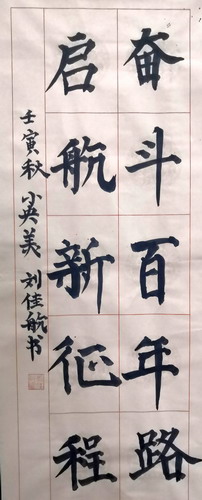 奋斗百年路
启航新征程
壬寅秋 小英美 刘佳航书